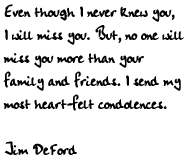 Even though I never knew you,
I will miss you. But, no one will
miss you more than your
family and friends. I send my
most heart-felt condolences.
Jim DeFord